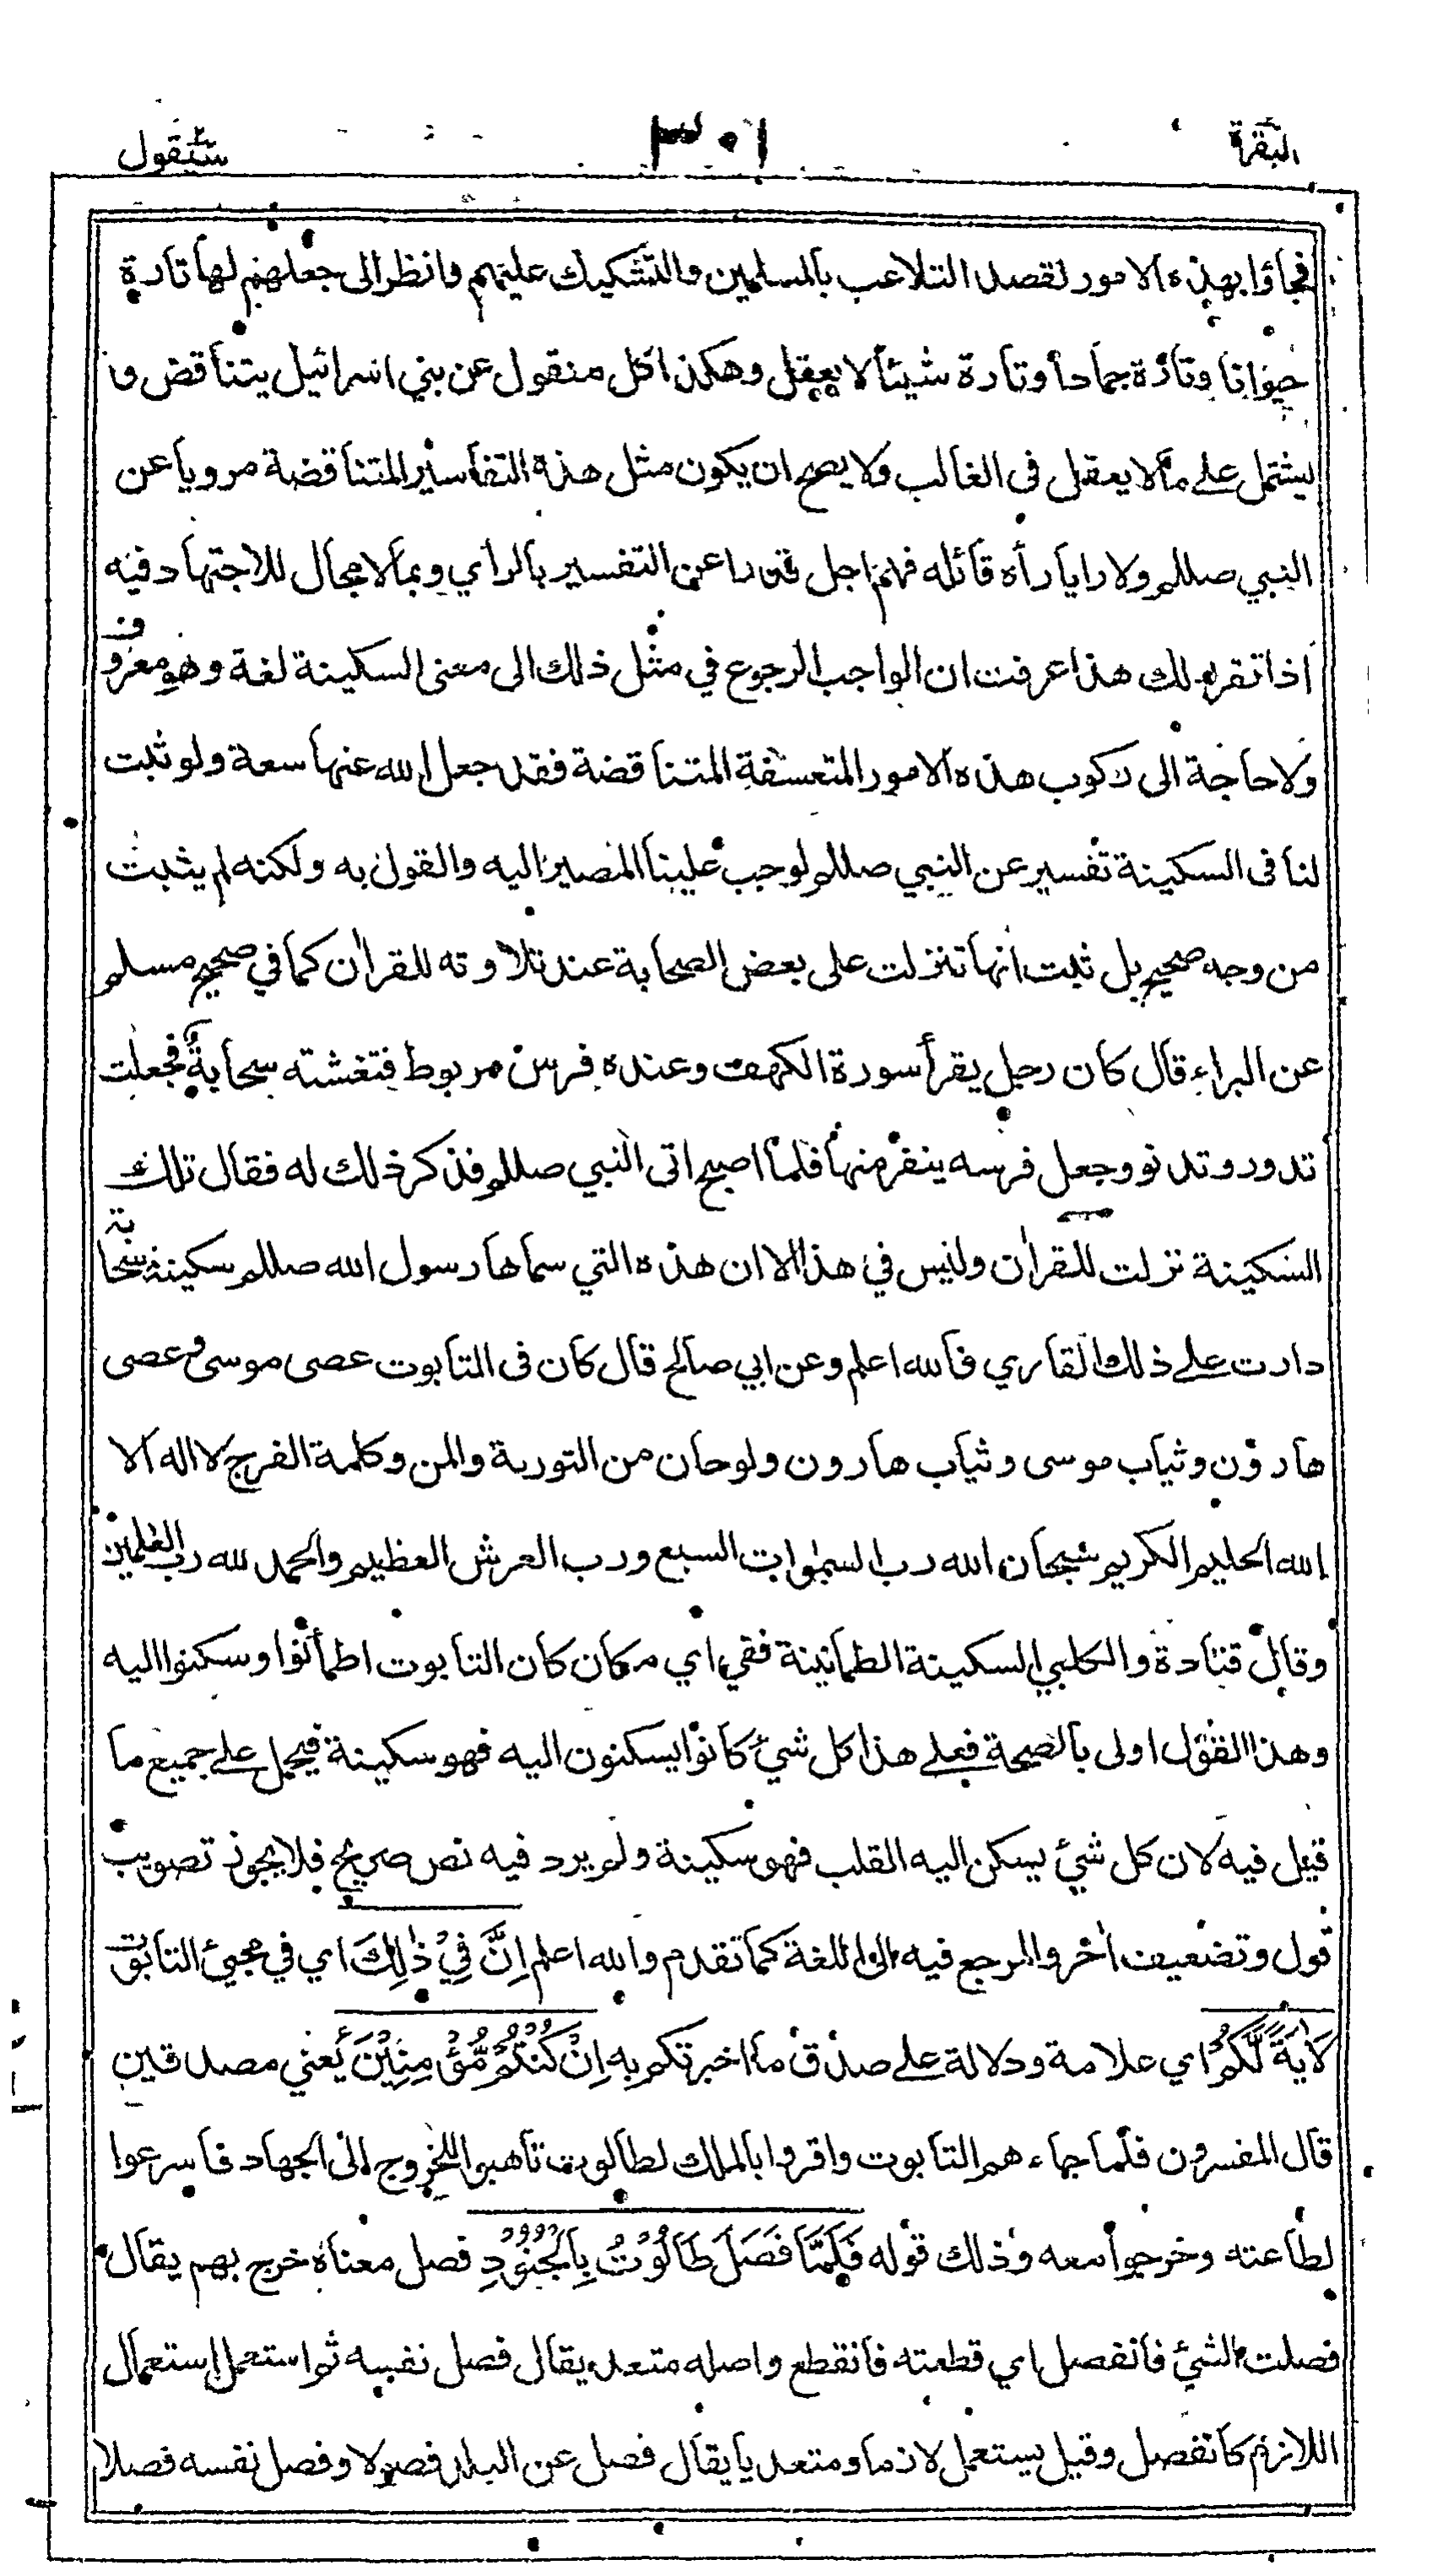 البقرة ٣٠١ سيقول
فجاؤا بهذه الامور لقصد التلاعب بالمسلمين والتشكيك عليهم وانظر الى جعلهم لها تارة
حيوانا وتارة جمادا وتارة شيئا لا يعقل وهكذا كل منقول عن بني اسرائيل يتناقض و
يشتمل على مالا يعقل فى الغالب ولا يصح ان يكون مثل هذه التفاسير المتناقضة مرويا عن
النبي صللم ولا رايا رأه قائله فهم اجل قدرا عن التفسير بالراي وبما لا مجال للاجتهاد فيه
اذا تقرر لك هذا عرفت ان الواجب الرجوع في مثل ذلك الى معنى السكينة لغة وهو معروف
ولا حاجة الى ركوب هذه الامور المتعسفة المتناقضة فقد جعل الله عنها سعة ولو ثبت
لنا فى السكينة تفسير عن النبي صللم لوجب علينا المصير اليه والقول به ولكنه لم يثبت
من وجه صحيح بل ثبت انها تنزلت على بعض الصحابة عند تلاوته للقرأن كما في صحيح مسلم
عن البراء قال كان رجل يقرأ سورة الكهف وعنده فرس مربوط فتغشته سحابة فجعلت
تدور وتدنو وجعل فرسه ينفر منها فلما اصبح اتى النبي صللم فذكر ذلك له فقال تلك
السكينة نزلت للقرأن وليس في هذا الا ان هذه التي سماها رسول الله صللم سكينة سحابة
دارت على ذلك القاري فالله اعلم وعن ابي صالح قال كان فى التابوت عصى موسى وعصى
هارون وثياب موسى وثياب هارون ولوحان من التورية والمن وكلمة الفرج لا اله الا
الله الحليم الكريم سبحان الله رب السموات السبع ورب العرش العظيم والحمد لله رب العلمين
وقال قتادة والكلبي السكينة الطمانينة ففي اي مكان كان التابوت اطمأنوا وسكنوا اليه
وهذا القول اولى بالصحة فعلى هذا كل شيئ كانوا يسكنون اليه فهو سكينة فيحمل على جميع ما
قيل فيه لان كل شيئ يسكن اليه القلب فهو سكينة ولم يرد فيه نص صريح فلا يجوز تصويب
قول وتضعيف أخر والمرجع فيه الى اللغة كما تقدم والله اعلم اِنَّ فِيْ ذٰلِكَ اي في مجيئ التابوت
لَاٰيَةً لَّكُمْ اي علامة ودلالة على صدق ما اخبرتكم به اِنْ كُنْتُمْ مُّؤْمِنِيْنَ يعني مصدقين
قال المفسرون فلما جاءهم التابوت واقروا بالملك لطالوت تاهبوا للخروج الى الجهاد فاسرعوا
لطاعته وخرجوا معه وذلك قوله فَلَمَّا فَصَلَ طَالُوْتُ بِالْجُنُوْدِ فصل معناه خرج بهم يقال
فصلت الشيئ فانفصل اي قطعته فانقطع واصله متعد يقال فصل نفسه ثم استعمل استعمال
اللازم كانفصل وقيل يستعمل لازما ومتعديا يقال فصل عن البلد فصولا وفصل نفسه فصلا